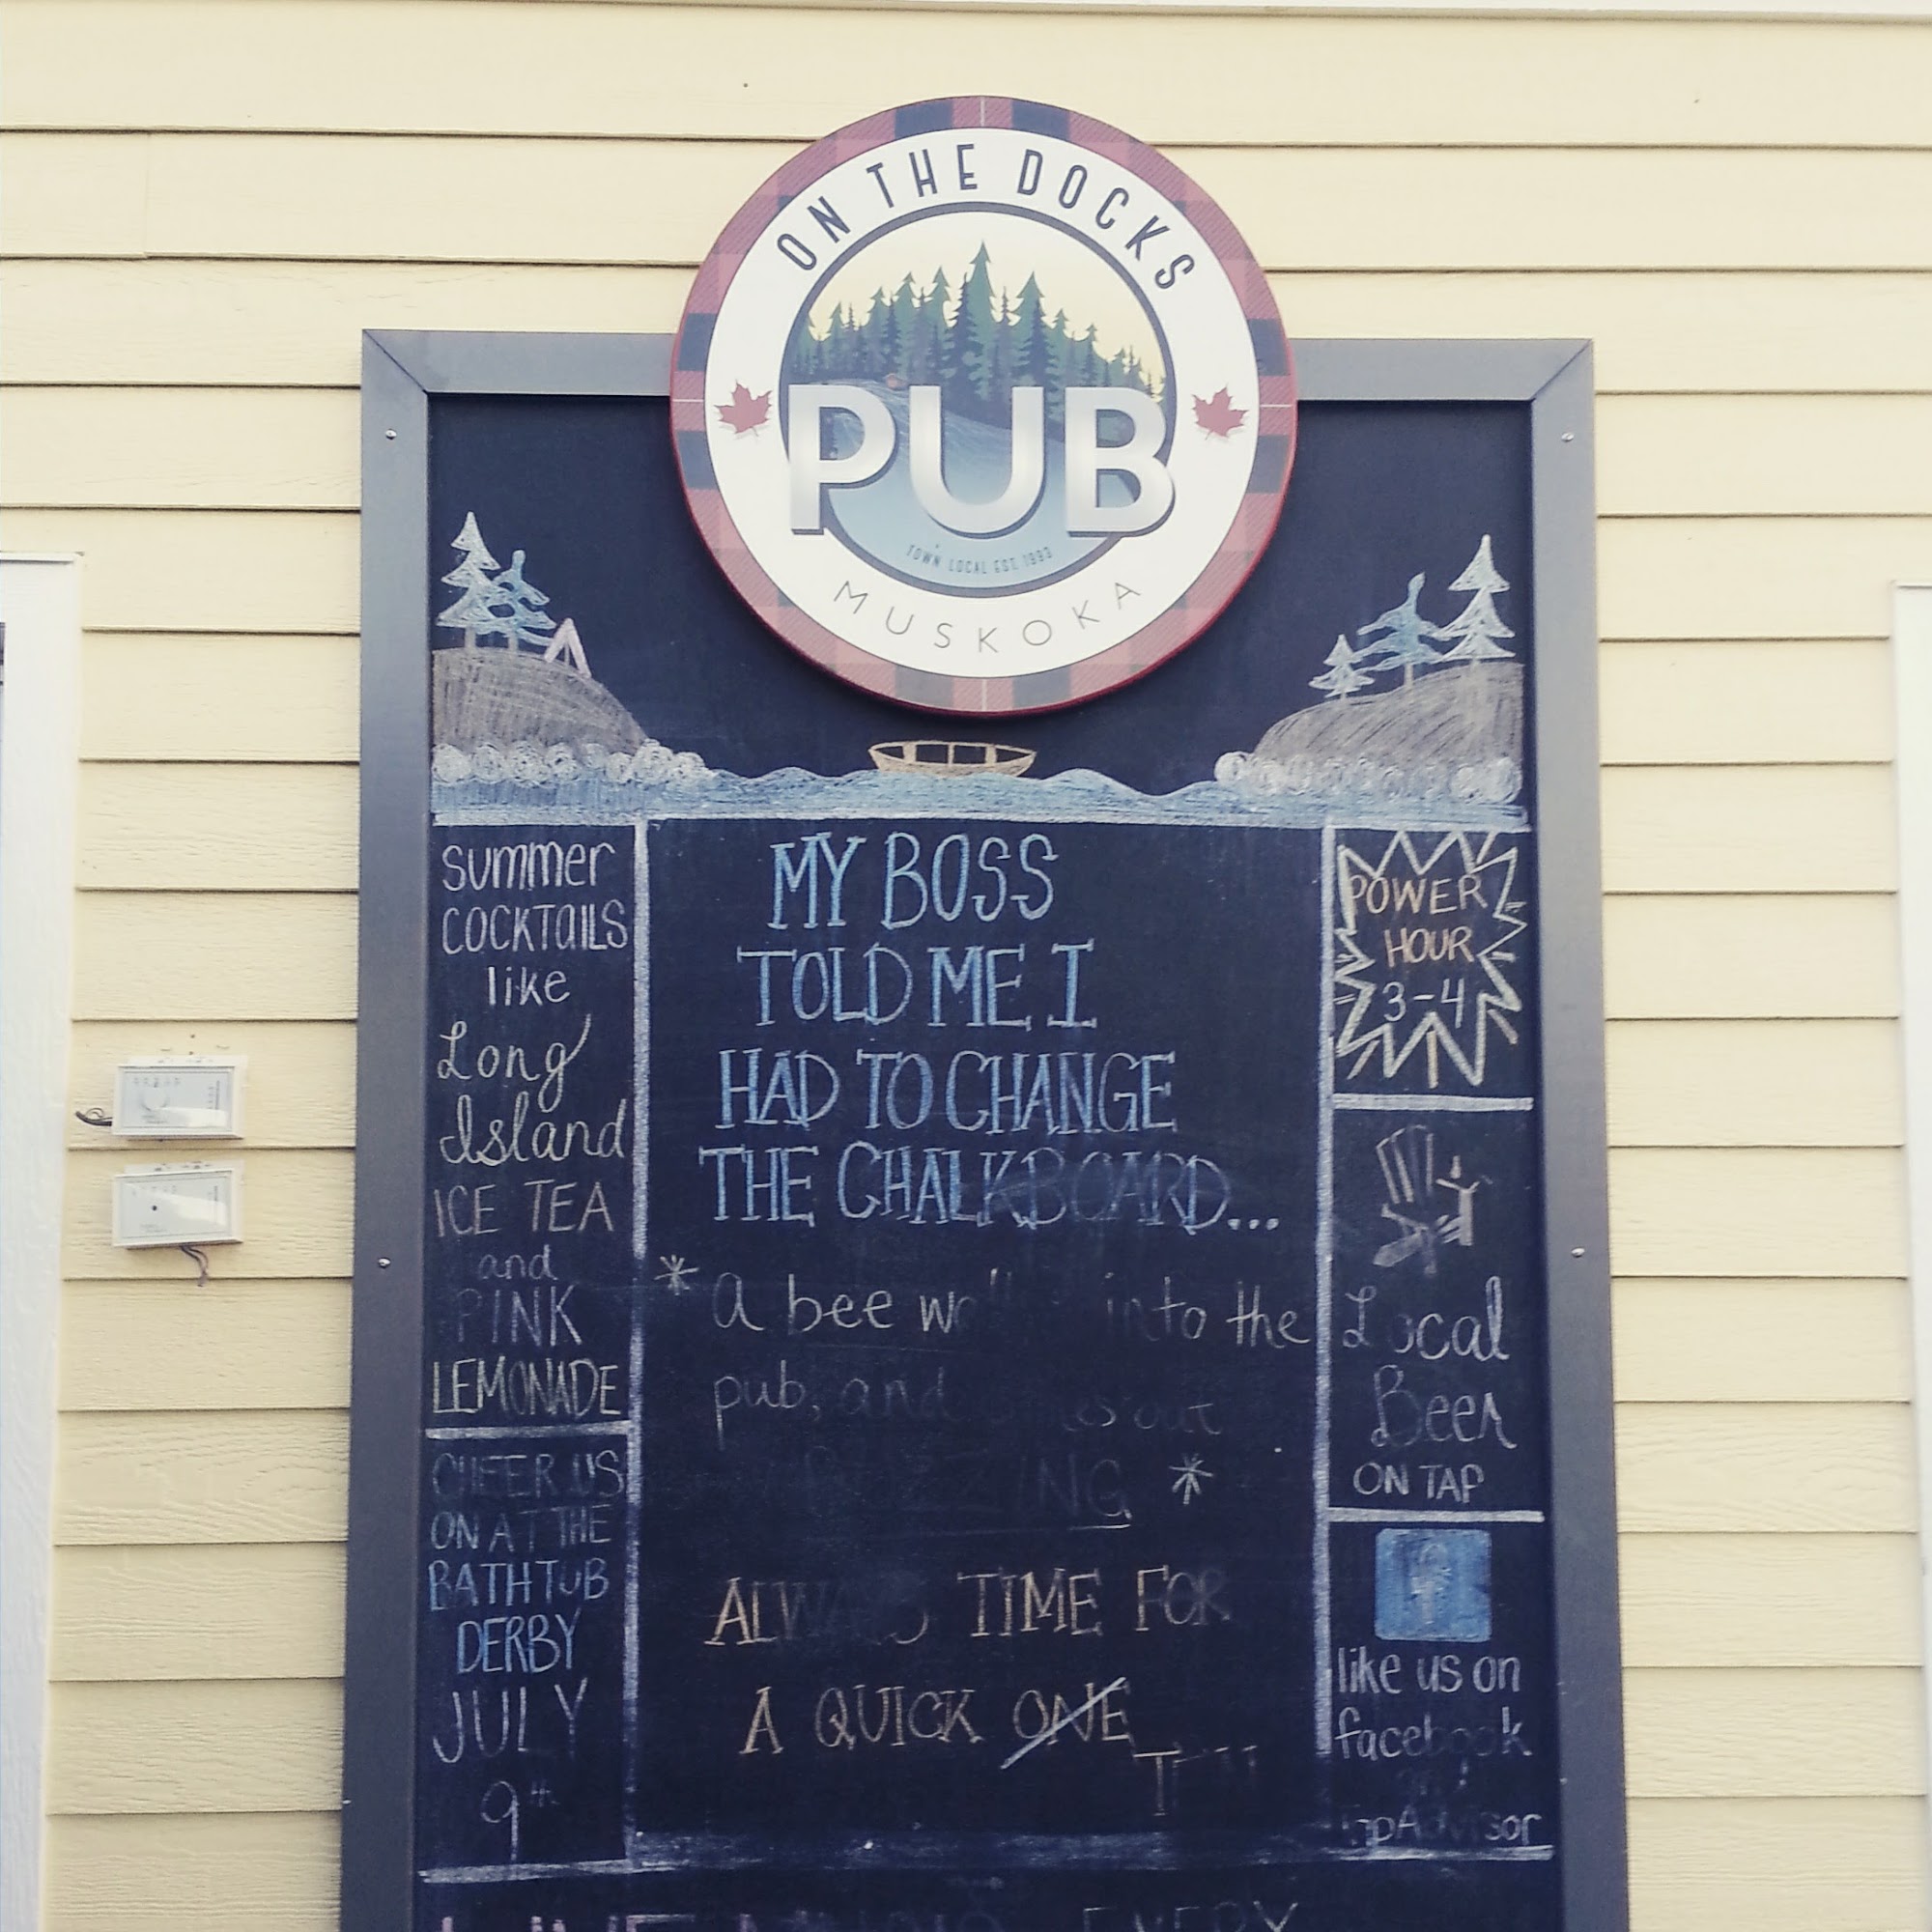 ON THE DOCKS
PUB
TOWN LOCAL EST. 1993
MUSKOKA
summer
COCKTAILS
like
Long
Island
ICE TEA
and
PINK
LEMONADE
CHEER US
ON AT THE
BATHTUB
DERBY
JULY
9th
MY BOSS
TOLD ME I
HAD TO CHANGE
THE CHALKBOARD...
* a bee into the
pub, and out
*
ALWAYS TIME FOR
A QUICK ONE
POWER
HOUR
3-4
Local
Beer
ON TAP
like us on
facebook
EVERY